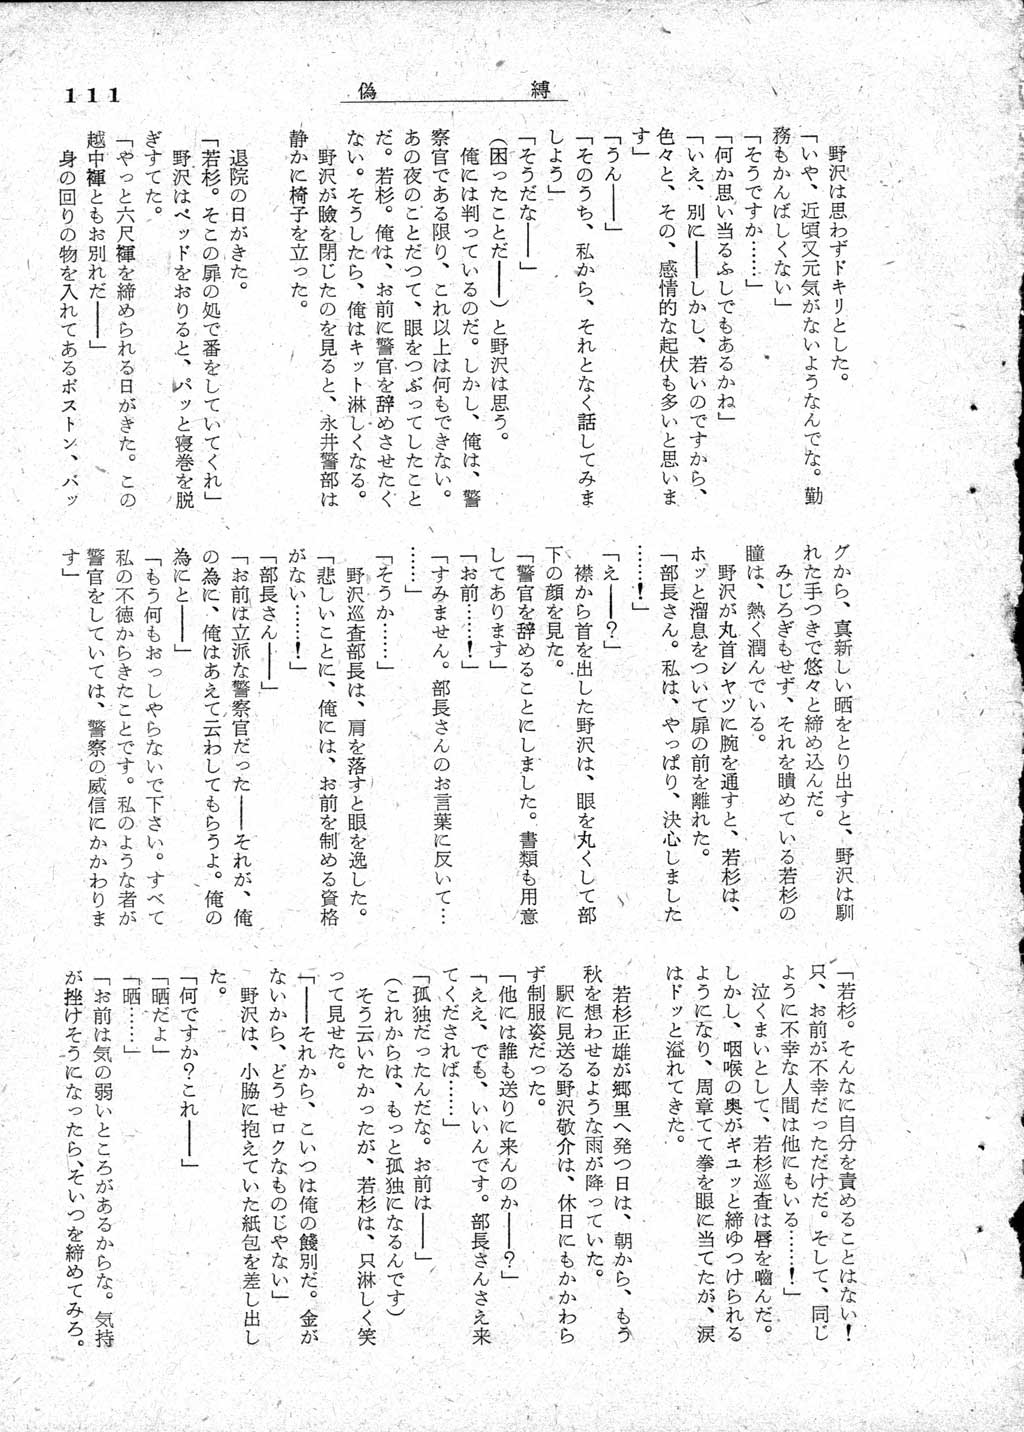 111
偽縛
野沢は思わずドキリとした。
「いや、近頃又元気がないようなんでな。勤
務もかんばしくない」
「そうですか……」
「何か思い当るふしでもあるかね」
「いえ、別に――しかし、若いのですから、
色々と、その、感情的な起伏も多いと思いま
す」
「うん――」
「そのうち、私から、それとなく話してみま
しよう」
「そうだな――」
(困ったことだ――)と野沢は思う。
俺には判っているのだ。しかし、俺は、警
察官である限り、これ以上は何もできない。
あの夜のことだつて、眼をつぶってしたこと
だ。若杉。俺は、お前に警官を辞めさせたく
ない。そうしたら、俺はキット淋しくなる。
野沢が瞼を閉じたのを見ると、永井警部は
静かに椅子を立った。
退院の日がきた。
「若杉。そこの扉の処で番をしていてくれ」
野沢はベッドをおりると、パッと寝巻を脱
ぎすてた。
「やっと六尺褌を締められる日がきた。この
越中褌ともお別れだ――」
身の回りの物を入れてあるボストン、バッ
グから、真新しい晒をとり出すと、野沢は馴
れた手つきで悠々と締め込んだ。
みじろぎもせず、それを瞶めている若杉の
瞳は、熱く潤んでいる。
野沢が丸首シャツに腕を通すと、若杉は、
ホッと溜息をついて扉の前を離れた。
「部長さん。私は、やっぱり、決心しました
……！」
「え――？」
襟から首を出した野沢は、眼を丸くして部
下の顔を見た。
「警官を辞めることにしました。書類も用意
してあります」
「お前……！」
「すみません。部長さんのお言葉に反いて…
……」
「そうか……」
野沢巡査部長は、肩を落すと眼を逸した。
「悲しいことに、俺には、お前を制める資格
がない……！」
「部長さん――」
「お前は立派な警察官だった――それが、俺
の為に、俺はあえて云わしてもらうよ。俺の
為にと――」
「もう何もおっしやらないで下さい。すべて
私の不徳からきたことです。私のような者が
警官をしていては、警察の威信にかかわりま
す」
「若杉。そんなに自分を責めることはない！
只、お前が不幸だっただけだ。そして、同じ
ように不幸な人間は他にもいる……！」
泣くまいとして、若杉巡査は唇を嚙んだ。
しかし、咽喉の奥がギユッと締ゆつけられる
ようになり、周章てて拳を眼に当てたが、涙
はドッと溢れてきた。
若杉正雄が郷里へ発つ日は、朝から、もう
秋を想わせるような雨が降っていた。
駅に見送る野沢敬介は、休日にもかかわら
ず制服姿だった。
「他には誰も送りに来んのか――？」
「ええ、でも、いいんです。部長さんさえ来
てくだされば……」
「孤独だったんだな。お前は――」
(これからは、もっと孤独になるんです)
そう云いたかったが、若杉は、只淋しく笑
って見せた。
「――それから、こいつは俺の餞別だ。金が
ないから、どうせロクなものじやない」
野沢は、小脇に抱えていた紙包を差し出し
た。
「何ですか？これ――」
「晒だよ」
「晒……」
「お前は気の弱いところがあるからな。気持
が挫けそうになったら、そいつを締めてみろ。